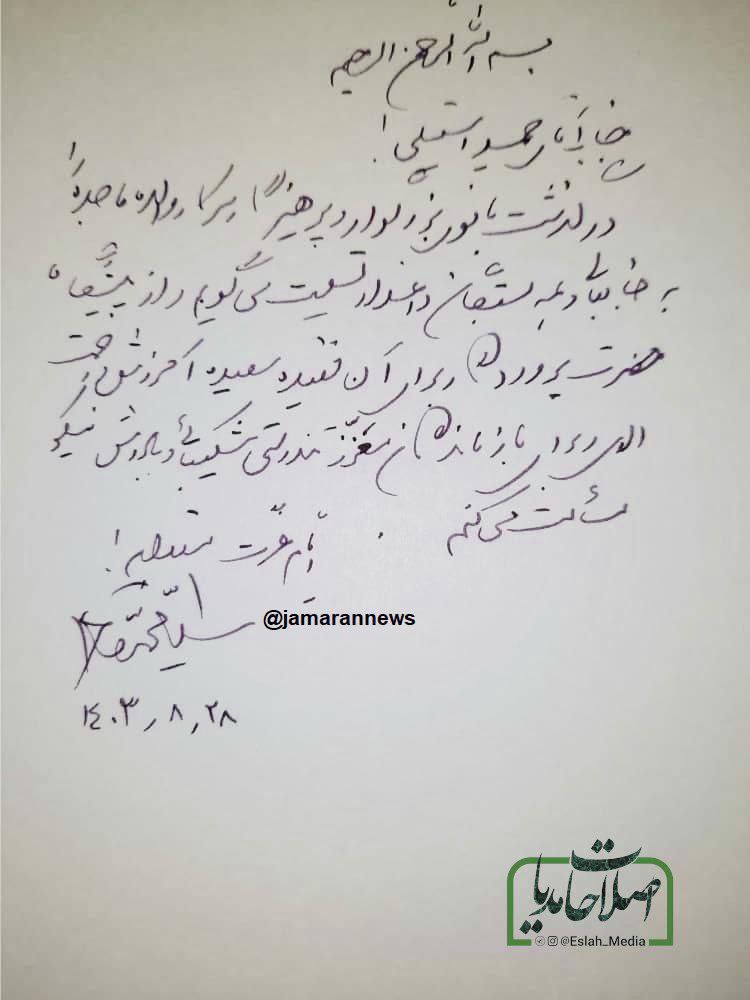 بسم الله الرحمن الرحیم
جناب آقای حمید استیلی!
درگذشت بانوی بزرگوار و پرهیزگار سرکار والده ماجده را
به جنابعالی و همه بستگان داغدار تسلیت می گویم و از پیشگاه
حضرت پروردگار برای آن فقیده سعیده آمرزش و رحمت
الهی و برای بازماندگان معزز تندرستی شکیبائی و پاداش نیکو
مسألت می کنم.
ایام عزت مستدام!
سید محمد خاتمی
@jamarannews
۱۴۰۳٫۸٫۲۸
اصلاحات مدیا
@Eslah_Media